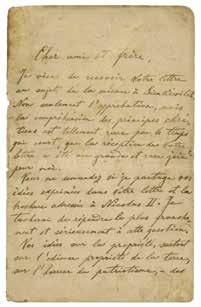 Cher ami et frère,
Je viens de recevoir votre lettre
au sujet de la
Non seulement l'approbation, mais
la compréhension des principes chré-
tiens est tellement rare par le temps
qui court, que la réception de votre
lettre a été une grande et rare joie
pour moi.
Vous me demandez si je partage vos
idées exprimées dans votre lettre et la
brochure adressée à Nicolas II. Je
tacherai de répondre le plus franche-
ment et sérieusement à cette question.
Vos idées sur la propriété, surtout
sur l'odieuse propriété de la terre,
sur l'horreur du patriotisme, – des